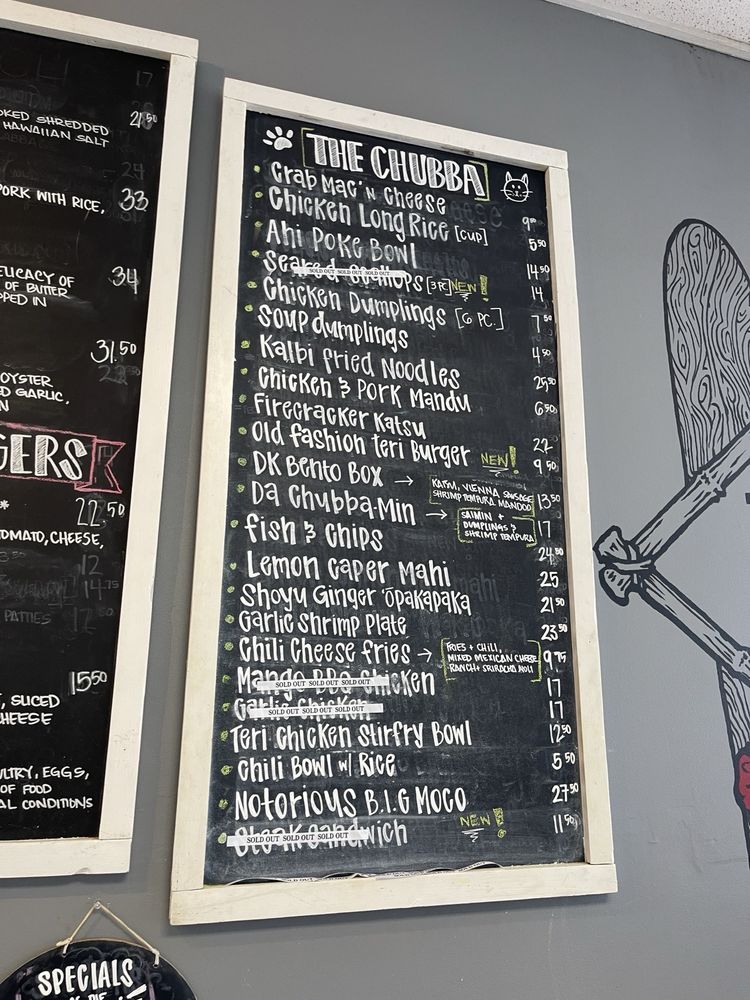 17
OKED SHREDDED 21.50
HAWAIIAN SALT
24
PORK WITH RICE, 33
ELICACY OF 34
OF BUTTER
PPED IN
31.50
OYSTER
ED GARLIC,
N
GERS
22.50
TOMATO, CHEESE,
12
14.75
PATTIES
15.50
, SLICED
CHEESE
LTRY, EGGS,
OF FOOD
AL CONDITIONS
SPECIALS
THE CHUBBA
Crab Mac 'n Cheese 9
Chicken Long Rice [CUP] 5.50
Ahi Poke Bowl 14.50
Seared Scallops [3 PC] NEW! 14
SOLD OUT SOLD OUT SOLD OUT
Chicken Dumplings [6 PC.] 7.50
Soup dumplings 4.50
Kalbi fried Noodles 25.50
Chicken & Pork Mandu 6.50
Firecracker Katsu 22
Old fashion teri Burger NEW! 9.50
DK Bento Box → KATSU, VIENNA SAUSAGE 13.50
SHRIMP TEMPURA, MANDOO
Da Chubba-Min → SAIMIN + 17
DUMPLINGS &
SHRIMP TEMPURA
fish & Chips 24.50
Lemon Caper Mahi 25
Shoyu Ginger 'ōpakapaka 21.50
Garlic Shrimp Plate 23.50
Chili Cheese fries → FRIES + CHILI, 9.75
MIXED MEXICAN CHEESE
RANCH + SRIRACHA AIOLI
Mango BBQ Chicken 17
SOLD OUT SOLD OUT SOLD OUT
Garlic Chicken 17
SOLD OUT SOLD OUT SOLD OUT
Teri Chicken Stirfry Bowl 12.50
Chili Bowl w/ Rice 5.50
Notorious B.I.G Moco 27.50
Steak Sandwich NEW! 11.50
SOLD OUT SOLD OUT SOLD OUT